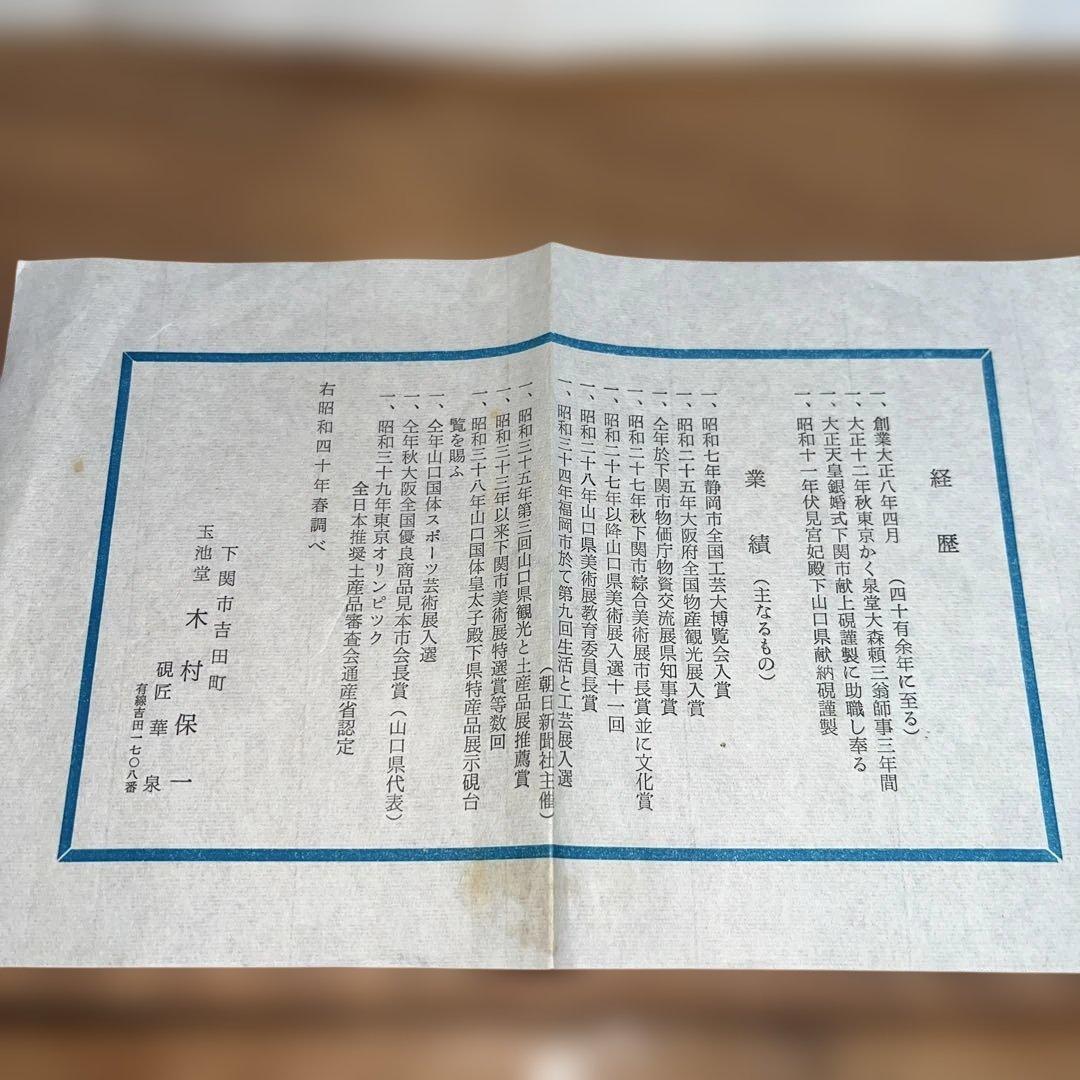 経歴
一、創業大正八年四月 （四十有余年に至る）
一、大正十二年秋東京かく泉堂大森頼三翁師事三年間
一、大正天皇銀婚式下関市献上硯謹製に助職し奉る
一、昭和十一年伏見宮妃殿下山口県献納硯謹製
業績（主なるもの）
一、昭和七年静岡市全国工芸大博覧会入賞
一、昭和二十五年大阪府全国物産観光展入賞
一、仝年於下関市物価庁物資交流展県知事賞
一、昭和二十七年秋下関市綜合美術展市長賞並に文化賞
一、昭和二十七年以降山口県美術展入選十一回
一、昭和二十八年山口県美術展教育委員長賞
一、昭和三十四年福岡市於て第九回生活と工芸展入選
（朝日新聞社主催）
一、昭和三十五年第三回山口県観光と土産品展推薦賞
一、昭和三十三年以来下関市美術展特選賞等数回
一、昭和三十八年山口国体皇太子殿下県特産品展示硯台
覧を賜ふ
一、仝年山口国体スポーツ芸術展入選
一、仝年秋大阪全国優良商品見本市会長賞（山口県代表）
一、昭和三十九年東京オリンピツク
全日本推奨土産品審査会通産省認定
右昭和四十年春調べ
下関市吉田町
玉池堂 木村保一
硯匠 華泉
有線吉田一七〇八番